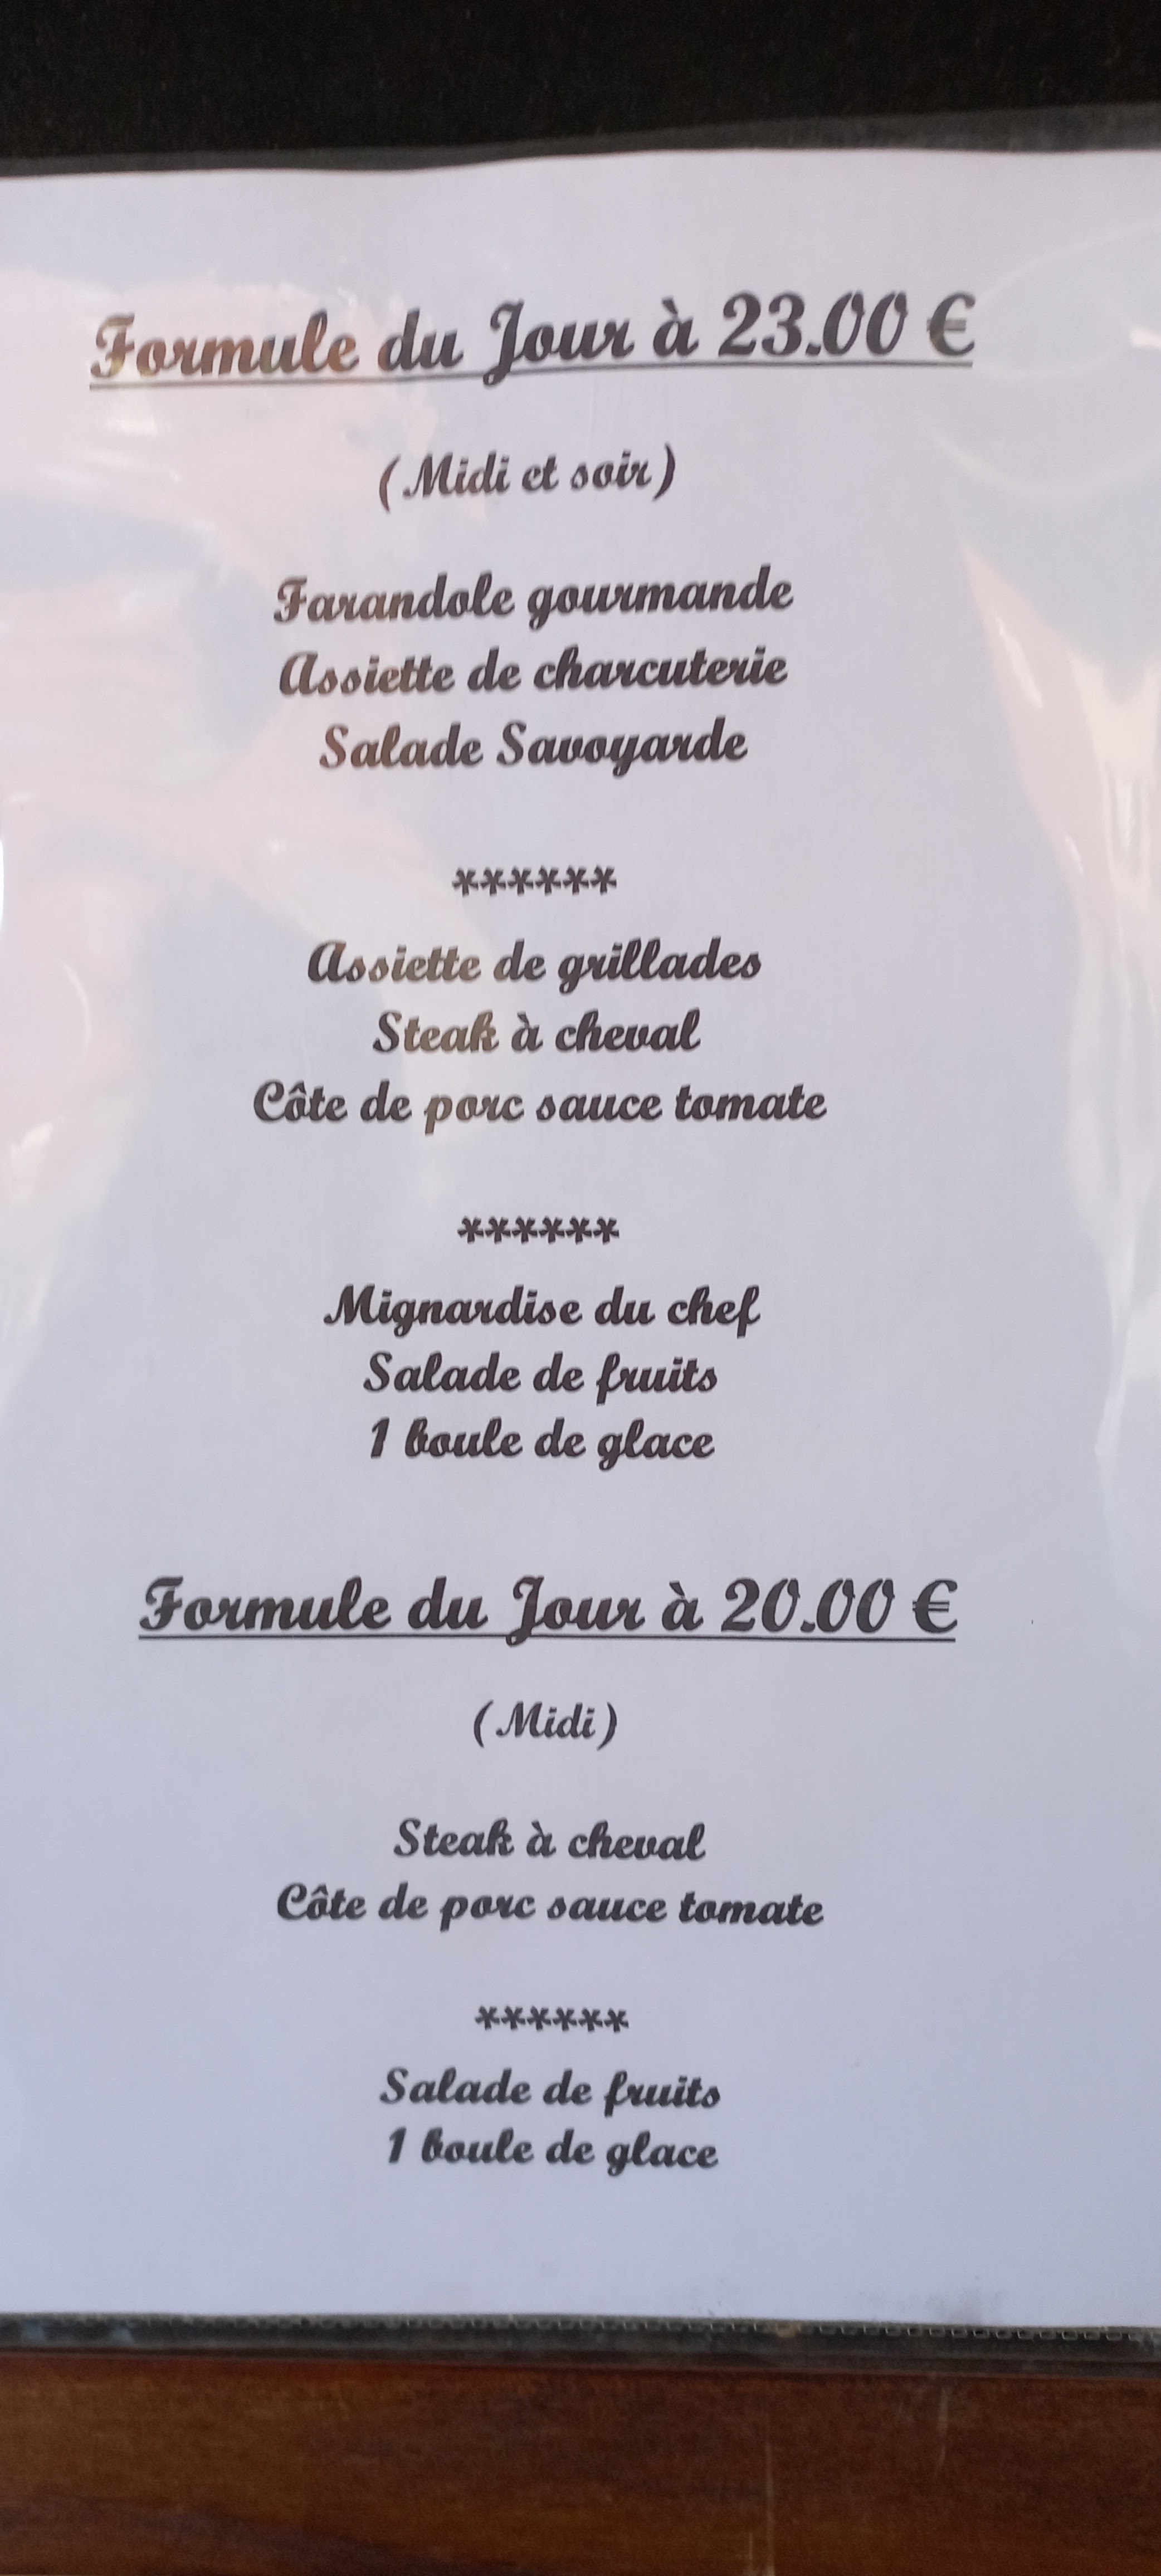 Formule du Jour à 23.00 €
(Midi et soir)
Farandole gourmande
Assiette de charcuterie
Salade Savoyarde
******
Assiette de grillades
Steak à cheval
Côte de porc sauce tomate
******
Mignardise du chef
Salade de fruits
1 boule de glace
Formule du Jour à 20.00 €
(Midi)
Steak à cheval
Côte de porc sauce tomate
******
Salade de fruits
1 boule de glace